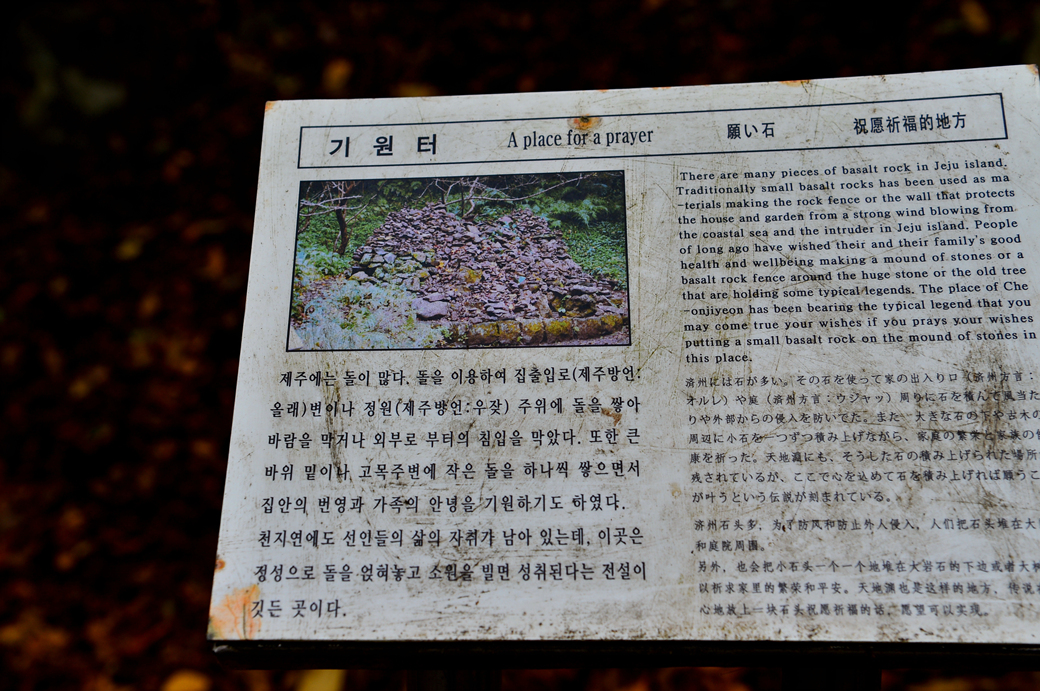 기 원 터
A place for a prayer
願い石
祝愿祈福的地方
제주에는 돌이 많다. 돌을 이용하여 집출입로(제주방언:
올래)변이나 정원(제주방언:우잣) 주위에 돌을 쌓아
바람을 막거나 외부로 부터의 침입을 막았다. 또한 큰
바위 밑이나 고목주변에 작은 돌을 하나씩 쌓으면서
집안의 번영과 가족의 안녕을 기원하기도 하였다.
천지연에도 선인들의 삶의 자취가 남아 있는데, 이곳은
정성으로 돌을 얹혀놓고 소원을 빌면 성취된다는 전설이
깃든 곳이다.
There are many pieces of basalt rock in Jeju island.
Traditionally small basalt rocks has been used as ma
-terials making the rock fence or the wall that protects
the house and garden from a strong wind blowing from
the coastal sea and the intruder in Jeju island. People
of long ago have wished their and their family's good
health and wellbeing making a mound of stones or a
basalt rock fence around the huge stone or the old tree
that are holding some typical legends. The place of Che
-onjiyeon has been bearing the typical legend that you
may come true your wishes if you prays your wishes
putting a small basalt rock on the mound of stones in
this place.
済州には石が多い。その石を使って家の出入り口（済州方言：
オルレ）や庭（済州方言：ウジャッ）周りに石を積んで風当た
りや外部からの侵入を防いでた。また 大きな石の下や古木の
周辺に小石を一つずつ積み上げながら、家庭の繁栄と家族の
康を祈った。天地淵にも、そうした石の積み上げられた場所
残されているが、ここで心を込めて石を積み上げれば願うこ
が叶うという伝説が刻まれている。
济州石头多，为了防风和防止外人侵入，人们把石头堆在大
和庭院周围。
另外，也会把小石头一个一个地堆在大岩石的下边或者大树
以祈求家里的繁荣和平安。天地渊也是这样的地方，传说
心地放上一块石头祝愿祈福的话，愿望可以实现。